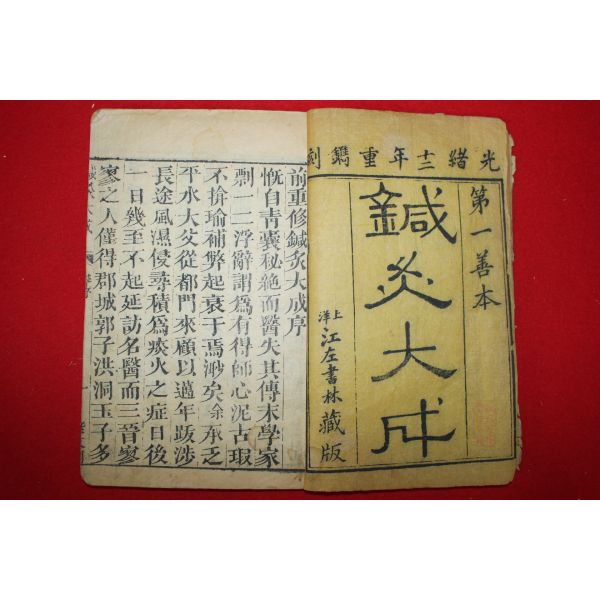 光緒十二年重鐫刻
第一善本
鍼灸大成
上洋江左書林藏版
前重修鍼灸大成序
慨自青囊秘絶而醫失其傳末學家
剽一二浮辭謂爲有得師心泥古瑕
不揜瑜補弊起衰于焉渺矣余承乏
平水大父從都門來顧以邁年跋涉
長途風濕侵尋積爲痰火之症日後
一日幾至不起延訪名醫而三晉寥
寥之人僅得郡城郭子洪洞玉子多